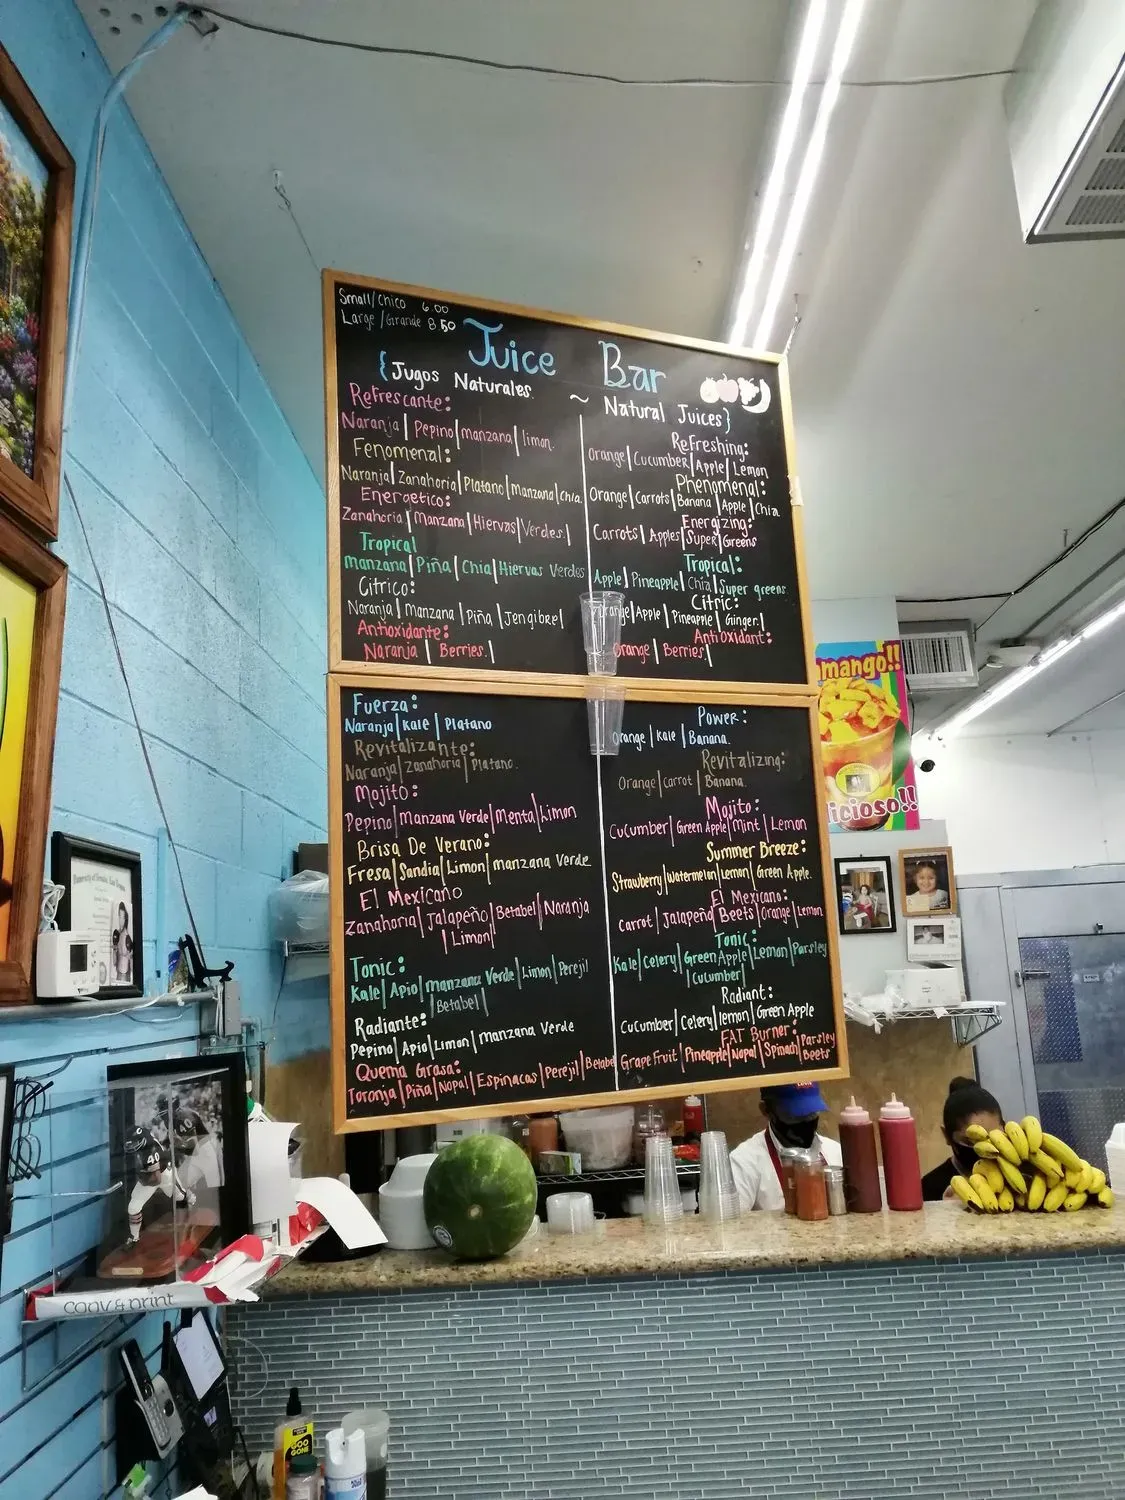 Small/Chico 6.00
Large/Grande 8.50
Juice Bar
{Jugos Naturales ~ Natural Juices}
Refrescante:
Naranja | Pepino | manzana | limon.
Fenomenal:
Naranja | Zanahoria | Platano | Manzana | Chia.
Energetico:
Zanahoria | Manzana | Hiervas | Verdes. |
Tropical
manzana | Piña | Chia | Hiervas Verdes
Citrico:
Naranja | Manzana | Piña | Jengibre |
Antioxidante:
Naranja | Berries. |
Refreshing:
Orange | Cucumber | Apple | Lemon
Phenomenal:
Orange | Carrots | Banana | Apple | Chia.
Energizing:
Carrots | Apples | Super | Greens
Tropical:
Apple | Pineapple | Chia | Super greens
Citric:
Orange | Apple | Pineapple | Ginger. |
Antioxidant:
Orange | Berries |
Fuerza:
Naranja | Kale | Platano
Revitalizante:
Naranja | Zanahoria | Platano.
Mojito:
Pepino | Manzana Verde | Menta | Limon
Brisa De Verano:
Fresa | Sandia | Limon | manzana Verde
El Mexicano
Zanahoria | Jalapeño | Betabel | Naranja
| Limon |
Tonic:
Kale | Apio | manzana Verde | Limon | Perejil
| Betabel |
Radiante:
Pepino | Apio | Limon | Manzana Verde
Quema Grasa:
Toronja | Piña | Nopal | Espinacas | Perejil | Betabel
Power:
Orange | Kale | Banana.
Revitalizing:
Orange | Carrot | Banana.
Mojito:
Cucumber | Green Apple | Mint | Lemon
Summer Breeze:
Strawberry | Watermelon | Lemon | Green Apple.
El Mexicano:
Carrot | Jalapeño | Beets | Orange | Lemon
Tonic:
Kale | Celery | Green Apple | Lemon | Parsley
| Cucumber |
Radiant:
Cucumber | Celery | lemon | Green Apple
FAT Burner:
Grape Fruit | Pineapple | Nopal | Spinach | Parsley
Beets
mango!!
licioso!!
40
copy & print
GOO
GONE